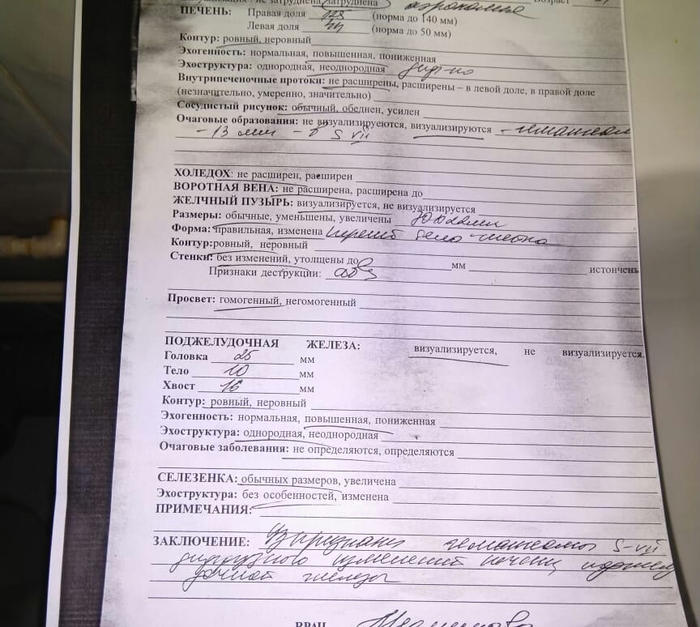 затруднена Возраст
ПЕЧЕНЬ: Правая доля 125 (норма до 140 мм)
Левая доля (норма до 50 мм)
Контур: ровный, неровный
Эхогенность: нормальная, повышенная, пониженная
Эхоструктура: однородная, неоднородная
Внутрипеченочные протоки: не расширены, расширены – в левой доле, в правой доле
(незначительно, умеренно, значительно)
Сосудистый рисунок: обычный, обеднен, усилен
Очаговые образования: не визуализируеются, визуализируются -
- 13 мм - в S VII
ХОЛЕДОХ: не расширен, расширен
ВОРОТНАЯ ВЕНА: не расширена, расширена до
ЖЕЛЧНЫЙ ПУЗЫРЬ: визуализируется, не визуализируется
Размеры: обычные, уменьшены, увеличены
Форма: правильная, изменена перегиб
Контур:ровный, неровный
Стенки: без изменений, утолщены до мм истончены
Признаки деструкции:
Просвет: гомогенный, негомогенный
ПОДЖЕЛУДОЧНАЯ ЖЕЛЕЗА: визуализируется, не визуализируется.
Головка 25 мм
Тело 10 мм
Хвост 16 мм
Контур: ровный, неровный
Эхогенность: нормальная, повышенная, пониженная
Эхоструктура: однородная, неоднородная
Очаговые заболевания: не определяются, определяются
СЕЛЕЗЕНКА: обычных размеров, увеличена
Эхоструктура: без особенностей, изменена
ПРИМЕЧАНИЯ:
ЗАКЛЮЧЕНИЕ: Эхопризнаки гемангиомы S-VII
диффузного изменений печени, поджелу
дочной железы
ВРАЧ